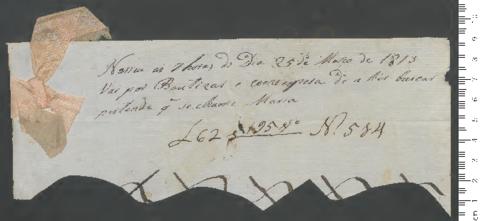 Nasceu as 7 horas do Dia 25 de Março de 1813
Vai por Bautizar e a de a hir buscar
pertende q se chame Maria
L 62 195 Nº 584